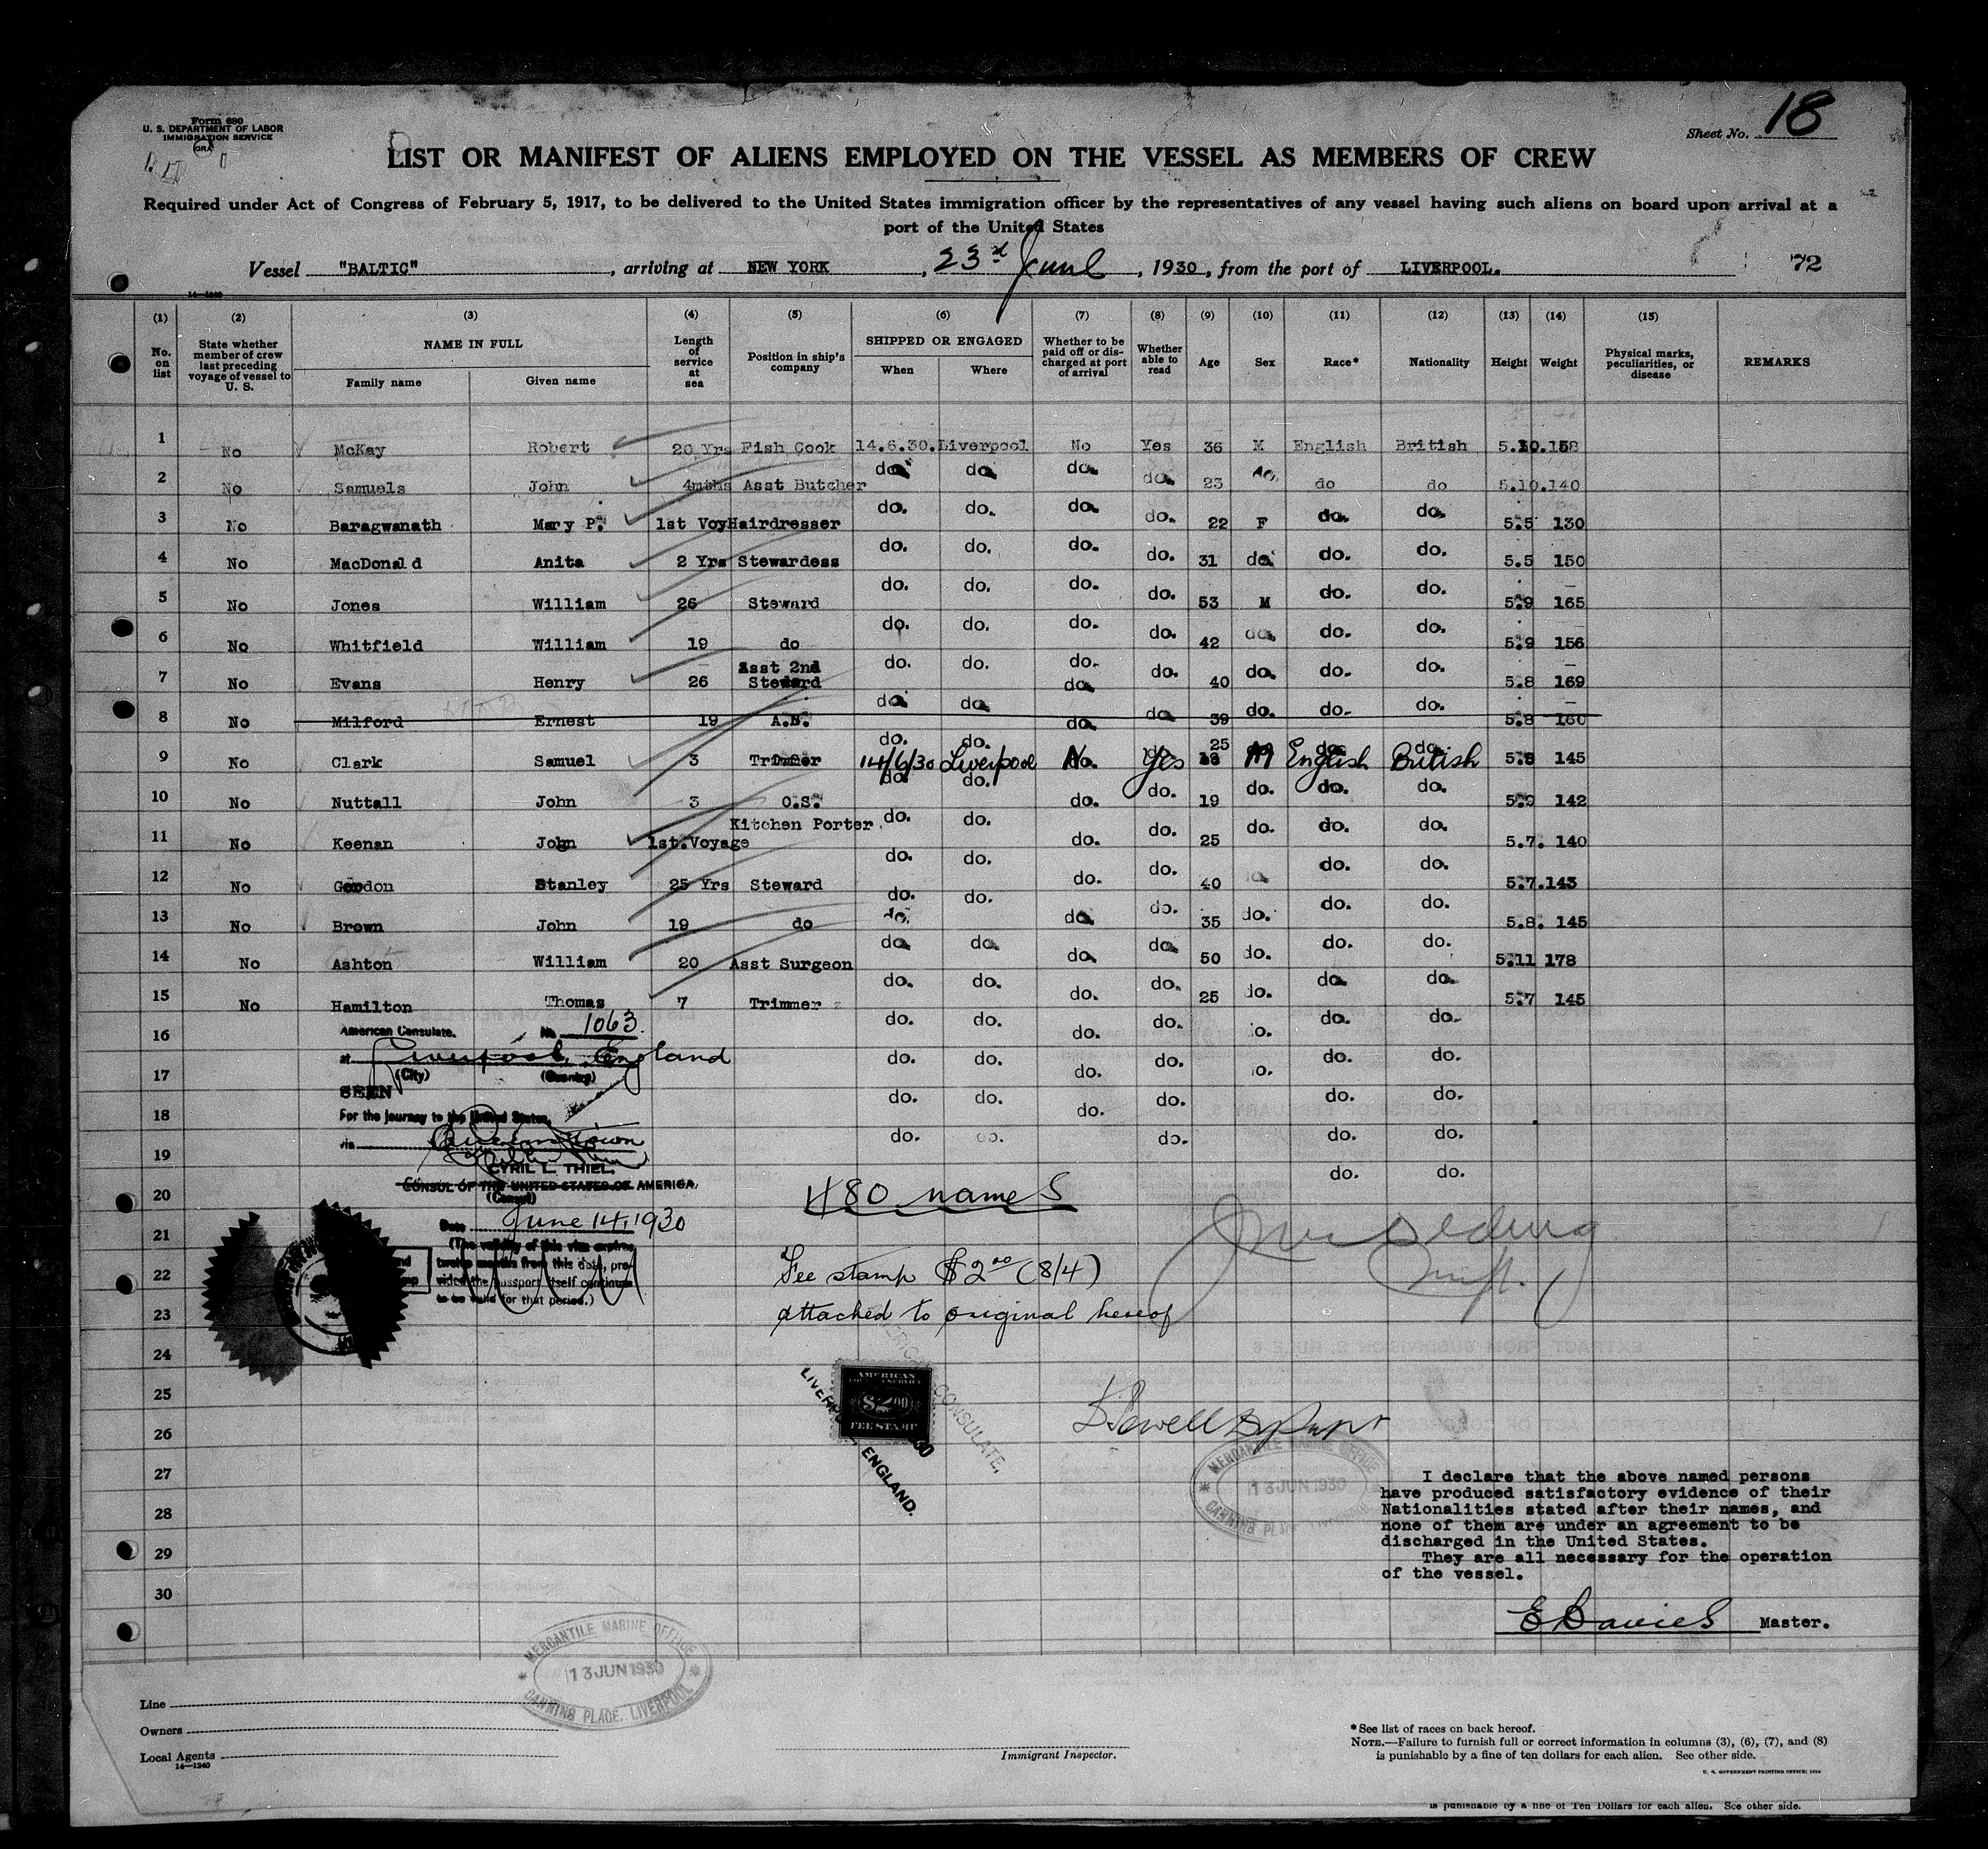 Form 680
U. S. DEPARTMENT OF LABOR
IMMIGRATION SERVICE
Sheet No. 18
LIST OR MANIFEST OF ALIENS EMPLOYED ON THE VESSEL AS MEMBERS OF CREW
Required under Act of Congress of February 5, 1917, to be delivered to the United States immigration officer by the representatives of any vessel having such aliens on board upon arrival at a
port of the United States
Vessel "BALTIC", arriving at NEW YORK, 23rd June, 1930, from the port of LIVERPOOL. 72
(1) (2) (3) (4) (5) (6) (7) (8) (9) (10) (11) (12) (13) (14) (15)
No. on list State whether member of crew last preceding voyage of vessel to U. S. NAME IN FULL Family name Given name Length of service at sea Position in ship's company SHIPPED OR ENGAGED When Where Whether to be paid off or discharged at port of arrival Whether able to read Age Sex Race* Nationality Height Weight Physical marks, peculiarities, or disease REMARKS
1 No McKay Robert 20 Yrs Fish Cook 14.6.30. Liverpool No Yes 36 M English British 5.10. 158
2 No Samuels John 4mths Asst Butcher do do do do 23 do do do 5.10. 140
3 No Baragwanath Mary P. 1st Voy Hairdresser do. do. do. do. 22 F do. do. 5.5 130
4 No MacDonald Anita 2 Yrs Stewardess do. do. do. do. 31 do. do. do. 5.5 150
5 No Jones William 26 Steward do. do. do. do. 53 M do. do. 5.9 165
6 No Whitfield William 19 do do. do. do. do. 42 do. do. do. 5.9 156
7 No Evans Henry 26 Asst 2nd Steward do. do. do. do. 40 do. do. do. 5.8 169
8 No Milford Ernest 19 A.B. do. do. do. do. 39 do. do. do. 5.8 160
9 No Clark Samuel 3 Trimmer 14/6/30 Liverpool No. Yes 25 M English British 5.8 145
10 No Nuttall John 3 O.S. do. do. do. do. 19 do. do. do. 5.9 142
11 No Keenan John 1st. Voyage Kitchen Porter do. do. do. do. 25 do. do. do. 5.7. 140
12 No Gordon Stanley 25 Yrs Steward do. do. do. do. 40 do. do. 5.7. 143
13 No Brown John 19 do do. do. do. do. 35 do. do. do. 5.8. 145
14 No Ashton William 20 Asst Surgeon do. do. do. do. 50 do. do. do. 5.11 178
15 No Hamilton Thomas 7 Trimmer do. do. do. do. 25 do. do. do. 5.7 145
16 do. do. do. do. do. do.
17 do. do. do. do. do. do.
18 do. do. do. do. do. do.
19 do. do. do. do. do.
do. do.
20
21
22
23
24
25
26
27
28
29
30
American Consulate. No 1063.
at Liverpool, England
(City) (Country)
SEEN
For the journey to the United States,
via Queenstown
CYRIL L. THIEL.
CONSUL OF THE UNITED STATES OF AMERICA.
(Consul)
Date June 14, 1930
(The validity of this visa expires
twelve months from this date, pro-
vided the passport itself continues
to be valid for that period.)
480 names
Fee stamp $2.00 (8/4)
attached to original hereof
AMERICAN
$2.00
FEE STAMP
AMERICAN CONSULATE,
LIVERPOOL, ENGLAND.
MERCANTILE MARINE OFFICE
13 JUN 1930
CANNING PLACE, LIVERPOOL
I declare that the above named persons
have produced satisfactory evidence of their
Nationalities stated after their names, and
none of them are under an agreement to be
discharged in the United States.
They are all necessary for the operation
of the vessel.
E Davies Master.
MERCANTILE MARINE OFFICE
13 JUN 1930
CANNING PLACE, LIVERPOOL
Line
Owners
Local Agents
14—1240
Immigrant Inspector.
* See list of races on back hereof.
NOTE.—Failure to furnish full or correct information in columns (3), (6), (7), and (8)
is punishable by a fine of ten dollars for each alien. See other side.
U. S. GOVERNMENT PRINTING OFFICE:
is punishable by a fine of Ten Dollars for each alien. See other side.